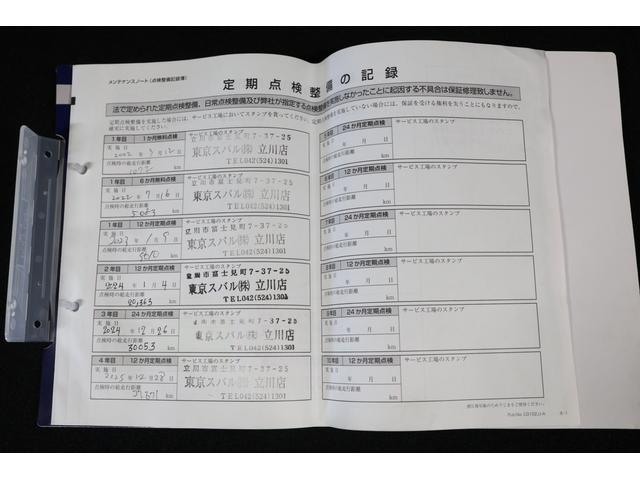 メンテナンスノート(点検整備記録簿)
定期点検整備の記録
法で定められた定期点検整備、日常点検整備及び弊社が指定する点検整備を実施しなかったことに起因する不具合は保証修理致しません。
1年目 1か月無料点検
実施日
2022年3月12日
点検時の総走行距離
1072 km
サービス工場のスタンプ
立川市富士見町7-37-25
東京スバル㈱ 立川店
TEL042(524)1301
1年目 6か月無料点検
実施日
2022年7月16日
点検時の総走行距離
km
サービス工場のスタンプ
立川市富士見町7-37-25
東京スバル㈱ 立川店
TEL042(524)1301
1年目 12か月定期点検
実施日
点検時の総走行距離
km
サービス工場のスタンプ
立川市富士見町7-37-25
東京スバル㈱ 立川店
TEL042(524)1301
2年目 12か月定期点検
実施日
2024年1月4日
点検時の総走行距離
km
サービス工場のスタンプ
立川市富士見町7-37-25
東京スバル㈱ 立川店
TEL042(524)1301
3年目 12か月定期点検
実施日
2024年12月26日
点検時の総走行距離
30053 km
サービス工場のスタンプ
立川市富士見町7-37-25
東京スバル㈱ 立川店
TEL042(524)1301
4年目 12か月定期点検
実施日
2025年12月28日
点検時の総走行距離
km
サービス工場のスタンプ
立川市富士見町7-37-25
東京スバル㈱ 立川店
TEL042(524)1301
24か月定期点検
サービス工場のスタンプ
年 月 日
km
12か月定期点検
サービス工場のスタンプ
年 月 日
km
7年目 24か月定期点検
サービス工場のスタンプ
年 月 日
km
8年目 12か月定期点検
サービス工場のスタンプ
年 月 日
km
24か月定期点検
サービス工場のスタンプ
年 月 日
km
10年目 12か月定期点検
サービス工場のスタンプ
実施日
年 月 日
点検時の総走行距離
km